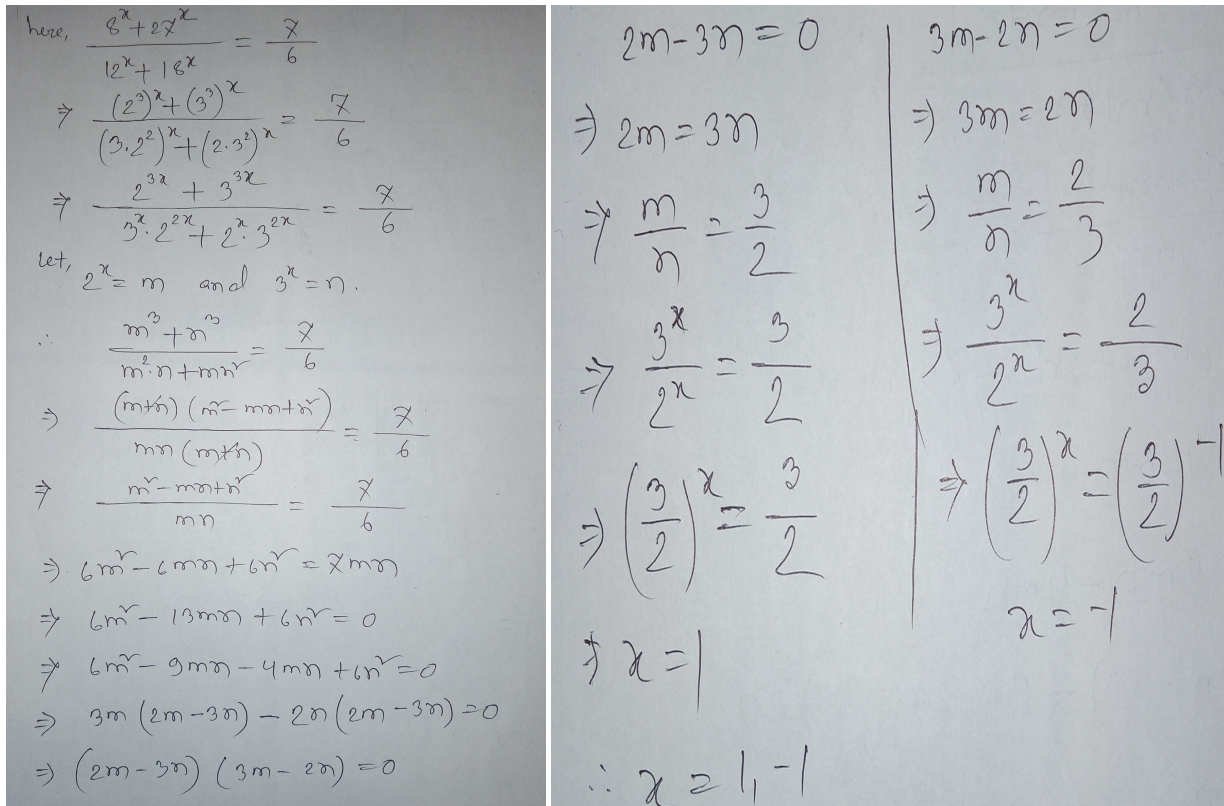 here, (8^x + 27^x)/(12^x + 18^x) = 7/6
⇒ ((2^3)^x + (3^3)^x)/((3.2^2)^x + (2.3^2)^x) = 7/6
⇒ (2^3x + 3^3x)/(3^x. 2^2x + 2^x. 3^2x) = 7/6
let,
2^x = m and 3^x = n.
∴ (m^3 + n^3)/(m^2.n + mn²) = 7/6
⇒ ((m+n) (m² - mn + n²))/(mn (m+n)) = 7/6
⇒ (m² - mn + n²)/(mn) = 7/6
⇒ 6m² - 6mn + 6n² = 7mn
⇒ 6m² - 13mn + 6n² = 0
⇒ 6m² - 9mn - 4mn + 6n² = 0
⇒ 3m (2m - 3n) - 2n (2m - 3n) = 0
⇒ (2m - 3n) (3m - 2n) = 0
2m - 3n = 0
⇒ 2m = 3n
⇒ m/n = 3/2
⇒ 3^x/2^x = 3/2
⇒ (3/2)^x = 3/2
⇒ x = 1
3m - 2n = 0
⇒ 3m = 2n
⇒ m/n = 2/3
⇒ 3^x/2^x = 2/3
⇒ (3/2)^x = (3/2)^-1
x = -1
∴ x = 1, -1